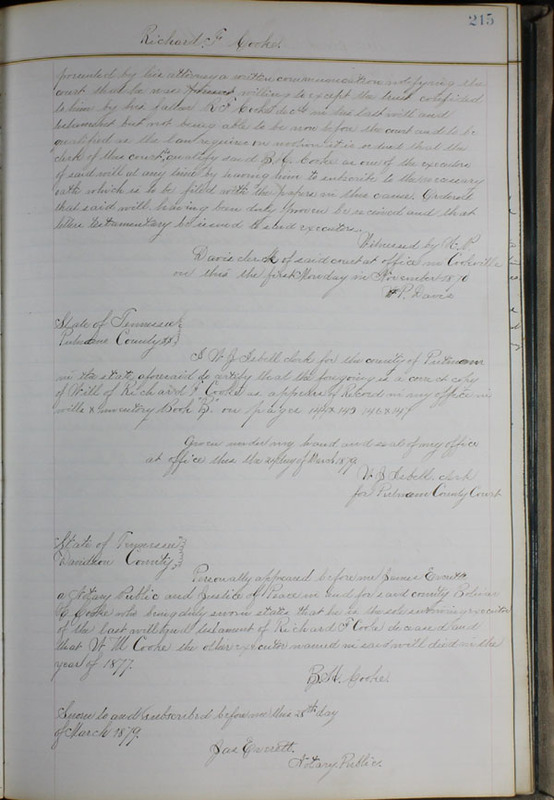 215
Richard F Cooke.
presented by his attorney a written communication notifying the
court that he was willing to except the trust confided
to him by his father R F Cooke decd in his last will and
testament but not being able to be now before the court and to be
qualified as the law requires on motion it is ordered that the
clerk of this court qualify said B. H. Cooke as one of the executors
of said will at any time by having him to subscribe to the necessary
oath which is to be filed with the papers in this cause. Ordered
that said will having been duly proven be received and that
letters testamentary be issued to said executors.
Witnessed by R. P.
Davis clerk of said court at office in Cookville
on this the first Monday in November 1870
R. P. Davis
State of Tennessee
Putnam County ss
I W J Isbell clerk for the county of Putnam
in the state aforesaid do certify that the foregoing is a correct copy
of Will of Richard F Cooke as appears of Record in my office in
wills & Inventory Book B. on pages 144 & 145 146 & 47
Given under my hand and seal of my office
at office this the day of March 1879
W J Isbell clerk
for Putnam County Court
State of Tennessee
Davidson County
Personally appeared before me James Everett
a Notary Public and Justice of Peace in and for said county Bolivar
H Cooke who being duly sworn state that he is the sole surviving executor
of the last will and testament of Richard F Cooke deceased and
that W M Cooke the other executor named in said will died in the
year of 1877.
B. H. Cooke
Sworn to and subscribed before me this 28th day
of March 1879.
Jas Everett.
Notary Public.